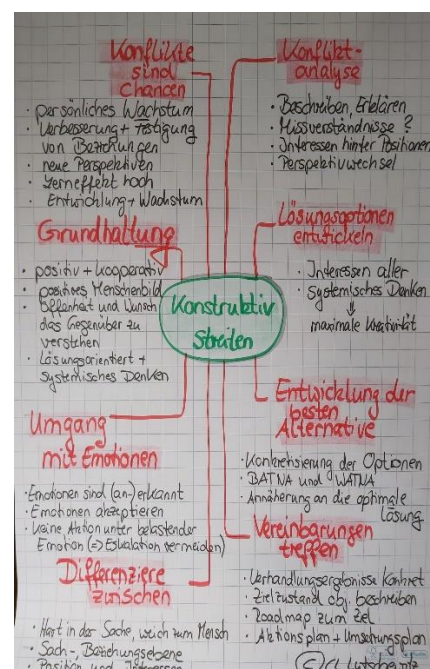 Konflikte
sind
Chancen
· persönliches Wachstum
· Verbesserung + Festigung
von Beziehungen
· neue Perspektiven
· Lerneffekt hoch
· Entwicklung + Wachstum
Grundhaltung
· positiv + kooperativ
· positives Menschenbild
· Offenheit und Wunsch
das Gegenüber zu
verstehen
· Lösungsorientiert +
systemisches Denken
Umgang
mit Emotionen
· Emotionen sind (an-)erkannt
· Emotionen akzeptieren
· Keine Aktion unter belastender
Emotion (=> Eskalation vermeiden)
Differenziere
zwischen
· Hart in der Sache, weich zum Mensch
· Sach-, Beziehungsebene
· Position und Interessen
Konstruktiv
Streiten
Konflikt-
analyse
· Beschreiben, Erklären
· Missverständnisse?
· Interessen hinter Positionen
· Perspektivwechsel
Lösungsoptionen
entwickeln
· Interessen aller
· Systemisches Denken
maximale Kreativität
Entwicklung der
besten
Alternative
· Konkretisierung der Optionen
· BATNA und WATNA
· Annäherung an die optimale
Lösung
Vereinbarungen
treffen
· Verhandlungsergebnisse konkret
· Zielzustand obj. beschreiben
· Roadmap zum Ziel
· Aktionsplan + Umsetzungsplan